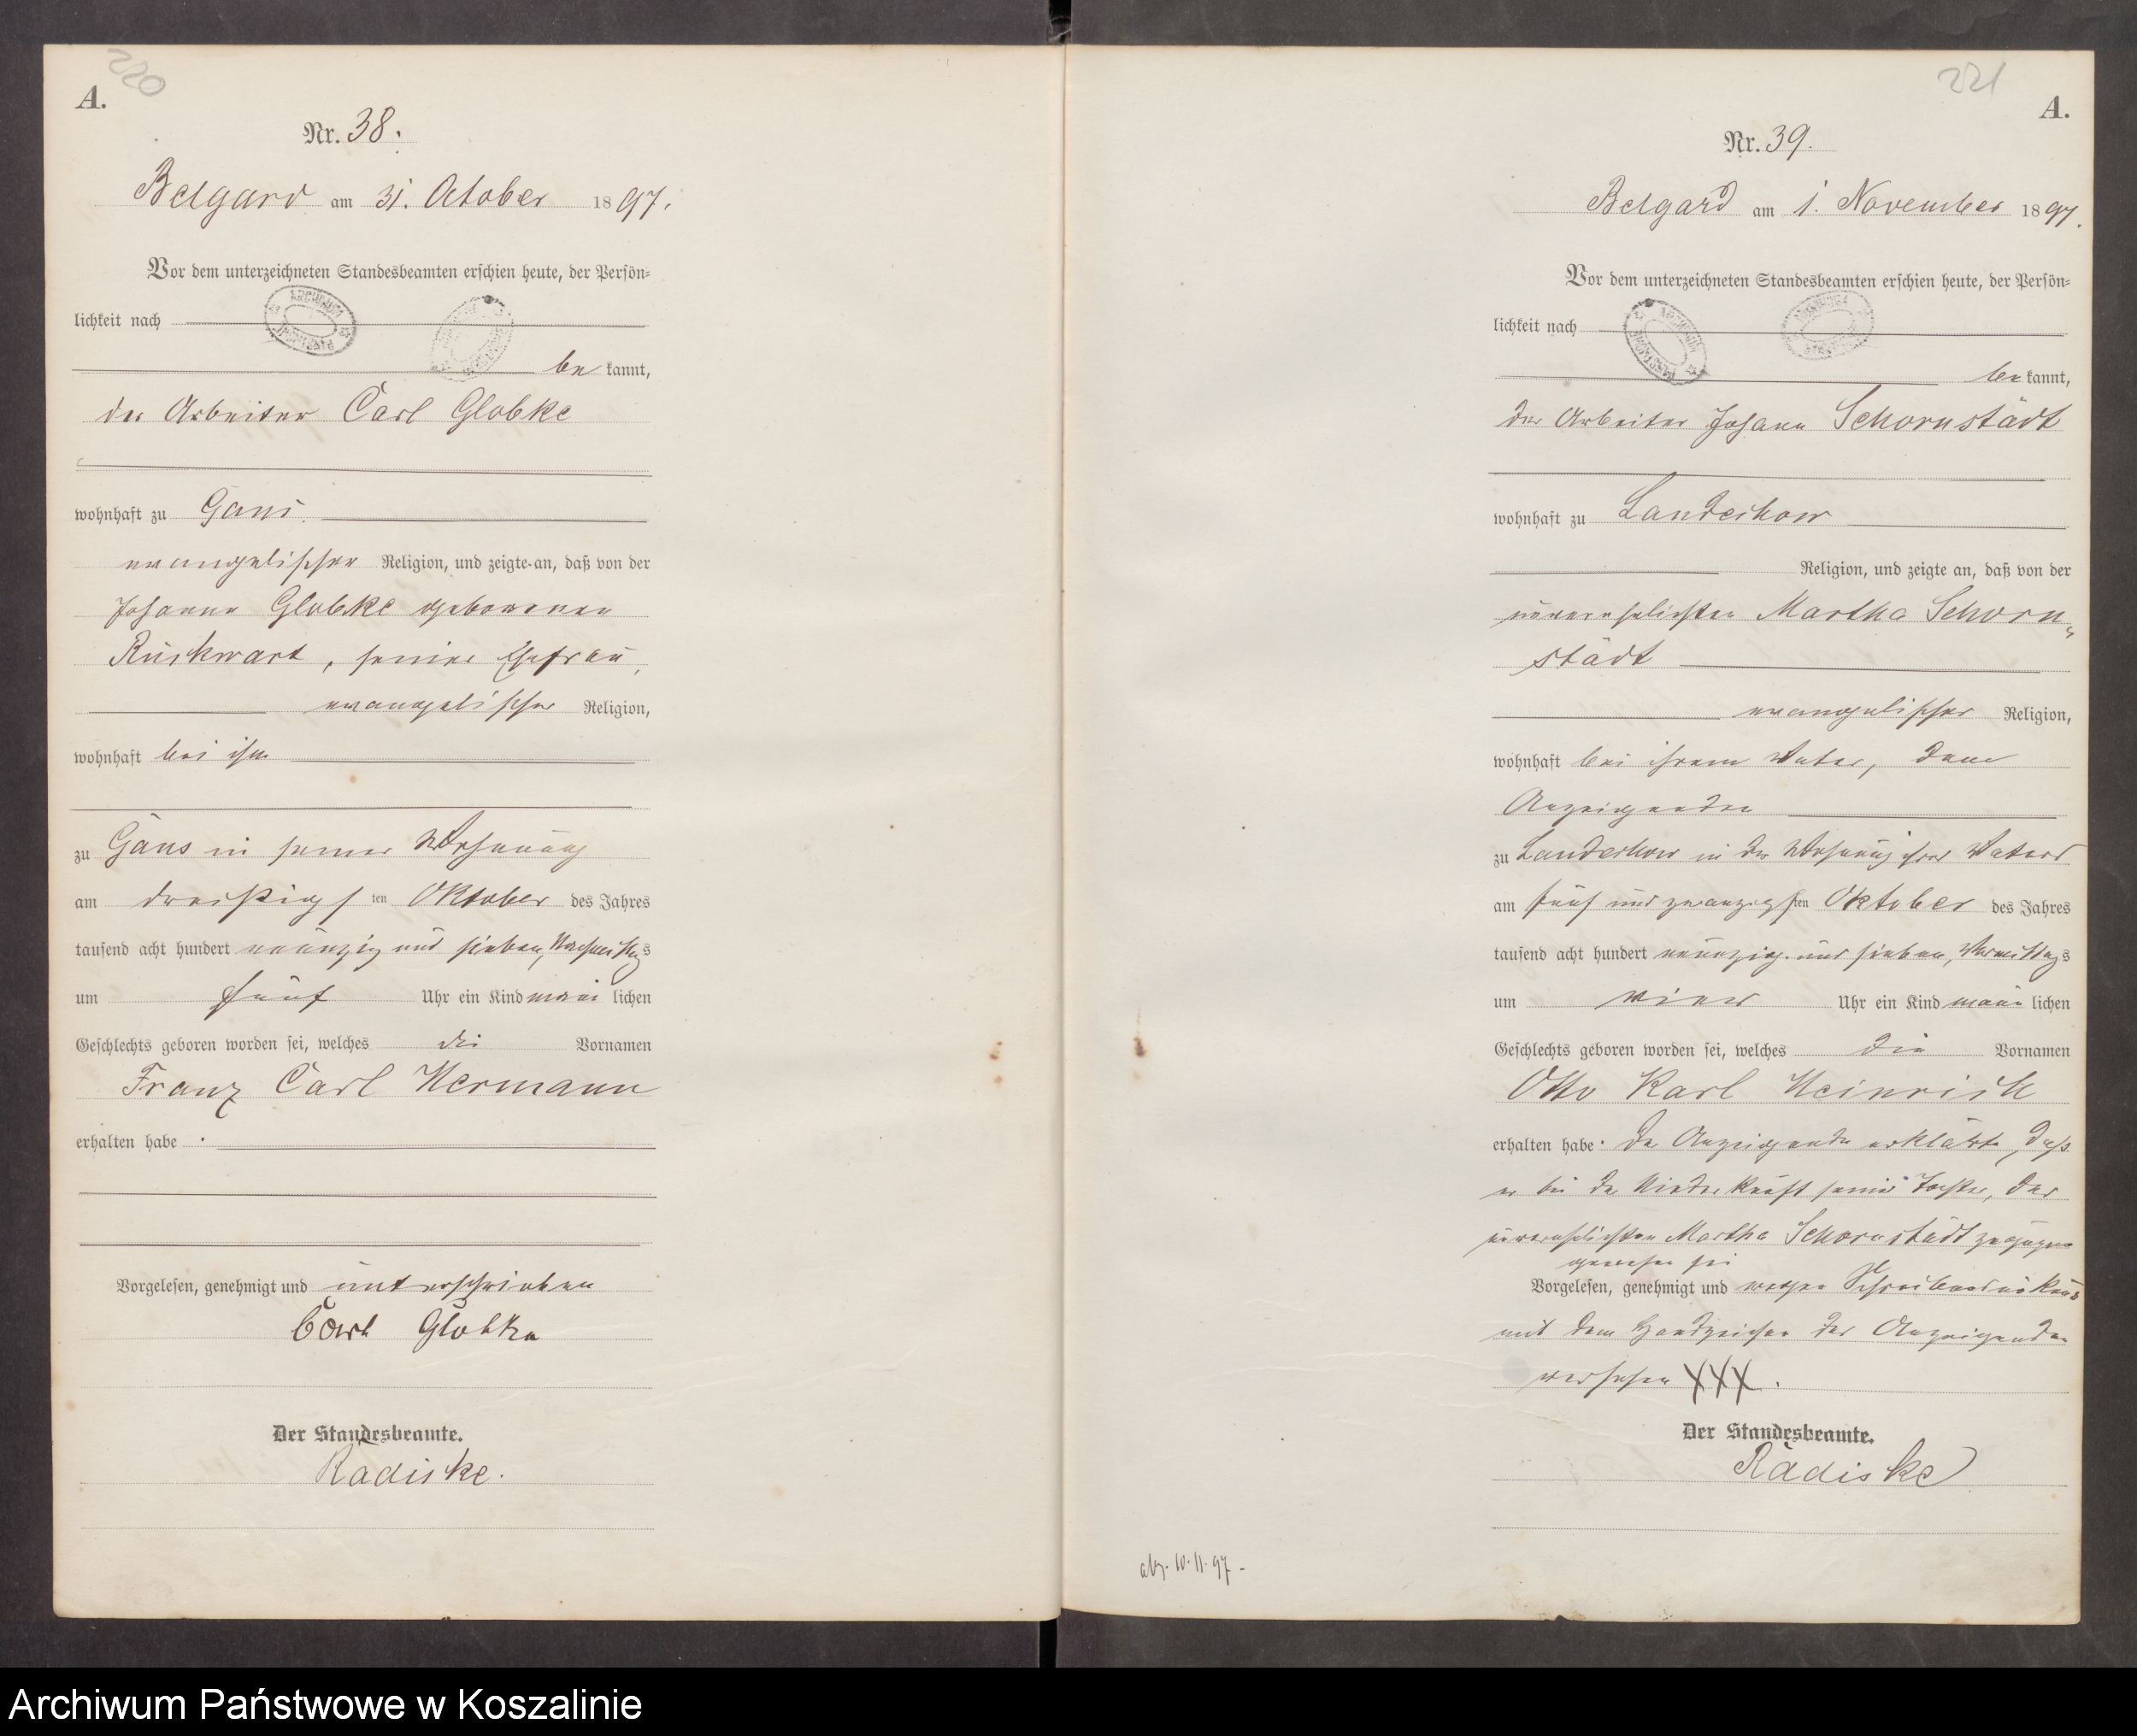 220
A.
Nr. 38.
Belgard am 31. October 1897.
Vor dem unterzeichneten Standesbeamten erschien heute, der Persön-
lichkeit nach
be kannt,
der Arbeiter Carl Globke
wohnhaft zu Gans.
evangelischer Religion, und zeigte an, daß von der
Johanne Globke geborenen
Rückwart, seiner Ehefrau,
evangelischer Religion,
wohnhaft bei ihm
zu Gans in seiner Wohnung
am dreißigsten Oktober des Jahres
tausend acht hundert neunzig und sieben, Nachmittags
um fünf Uhr ein Kind männlichen
Geschlechts geboren worden sei, welches die Vornamen
Franz Carl Hermann
erhalten habe.
Vorgelesen, genehmigt und unterschrieben
Carl Globke
Der Standesbeamte.
Radiske.
221
A.
Nr. 39.
Belgard am 1. November 1897.
Vor dem unterzeichneten Standesbeamten erschien heute, der Persön-
lichkeit nach
be kannt,
der Arbeiter Johann Schornstädt
wohnhaft zu Landechow
Religion, und zeigte an, daß von der
unverehelichten Martha Schorn-
städt
evangelischer Religion,
wohnhaft bei ihrem Vater, dem
Anzeigenden
zu Landechow in der Wohnung ihres Vaters
am fünf und zwanzigsten Oktober des Jahres
tausend acht hundert neunzig und sieben, Vormittags
um vier Uhr ein Kind männlichen
Geschlechts geboren worden sei, welches die Vornamen
Otto Karl Heinrich
erhalten habe. Der Anzeigende erklärte, daß
er bei der Niederkunft seiner Tochter, der
unverehelichten Martha Schornstädt zugegen
gewesen sei
Vorgelesen, genehmigt und wegen Schreibensunkund
mit dem Handzeichen des Anzeigenden
versehen XXX.
Der Standesbeamte.
Radiske
abg. 10.11.97.-
Archiwum Państwowe w Koszalinie